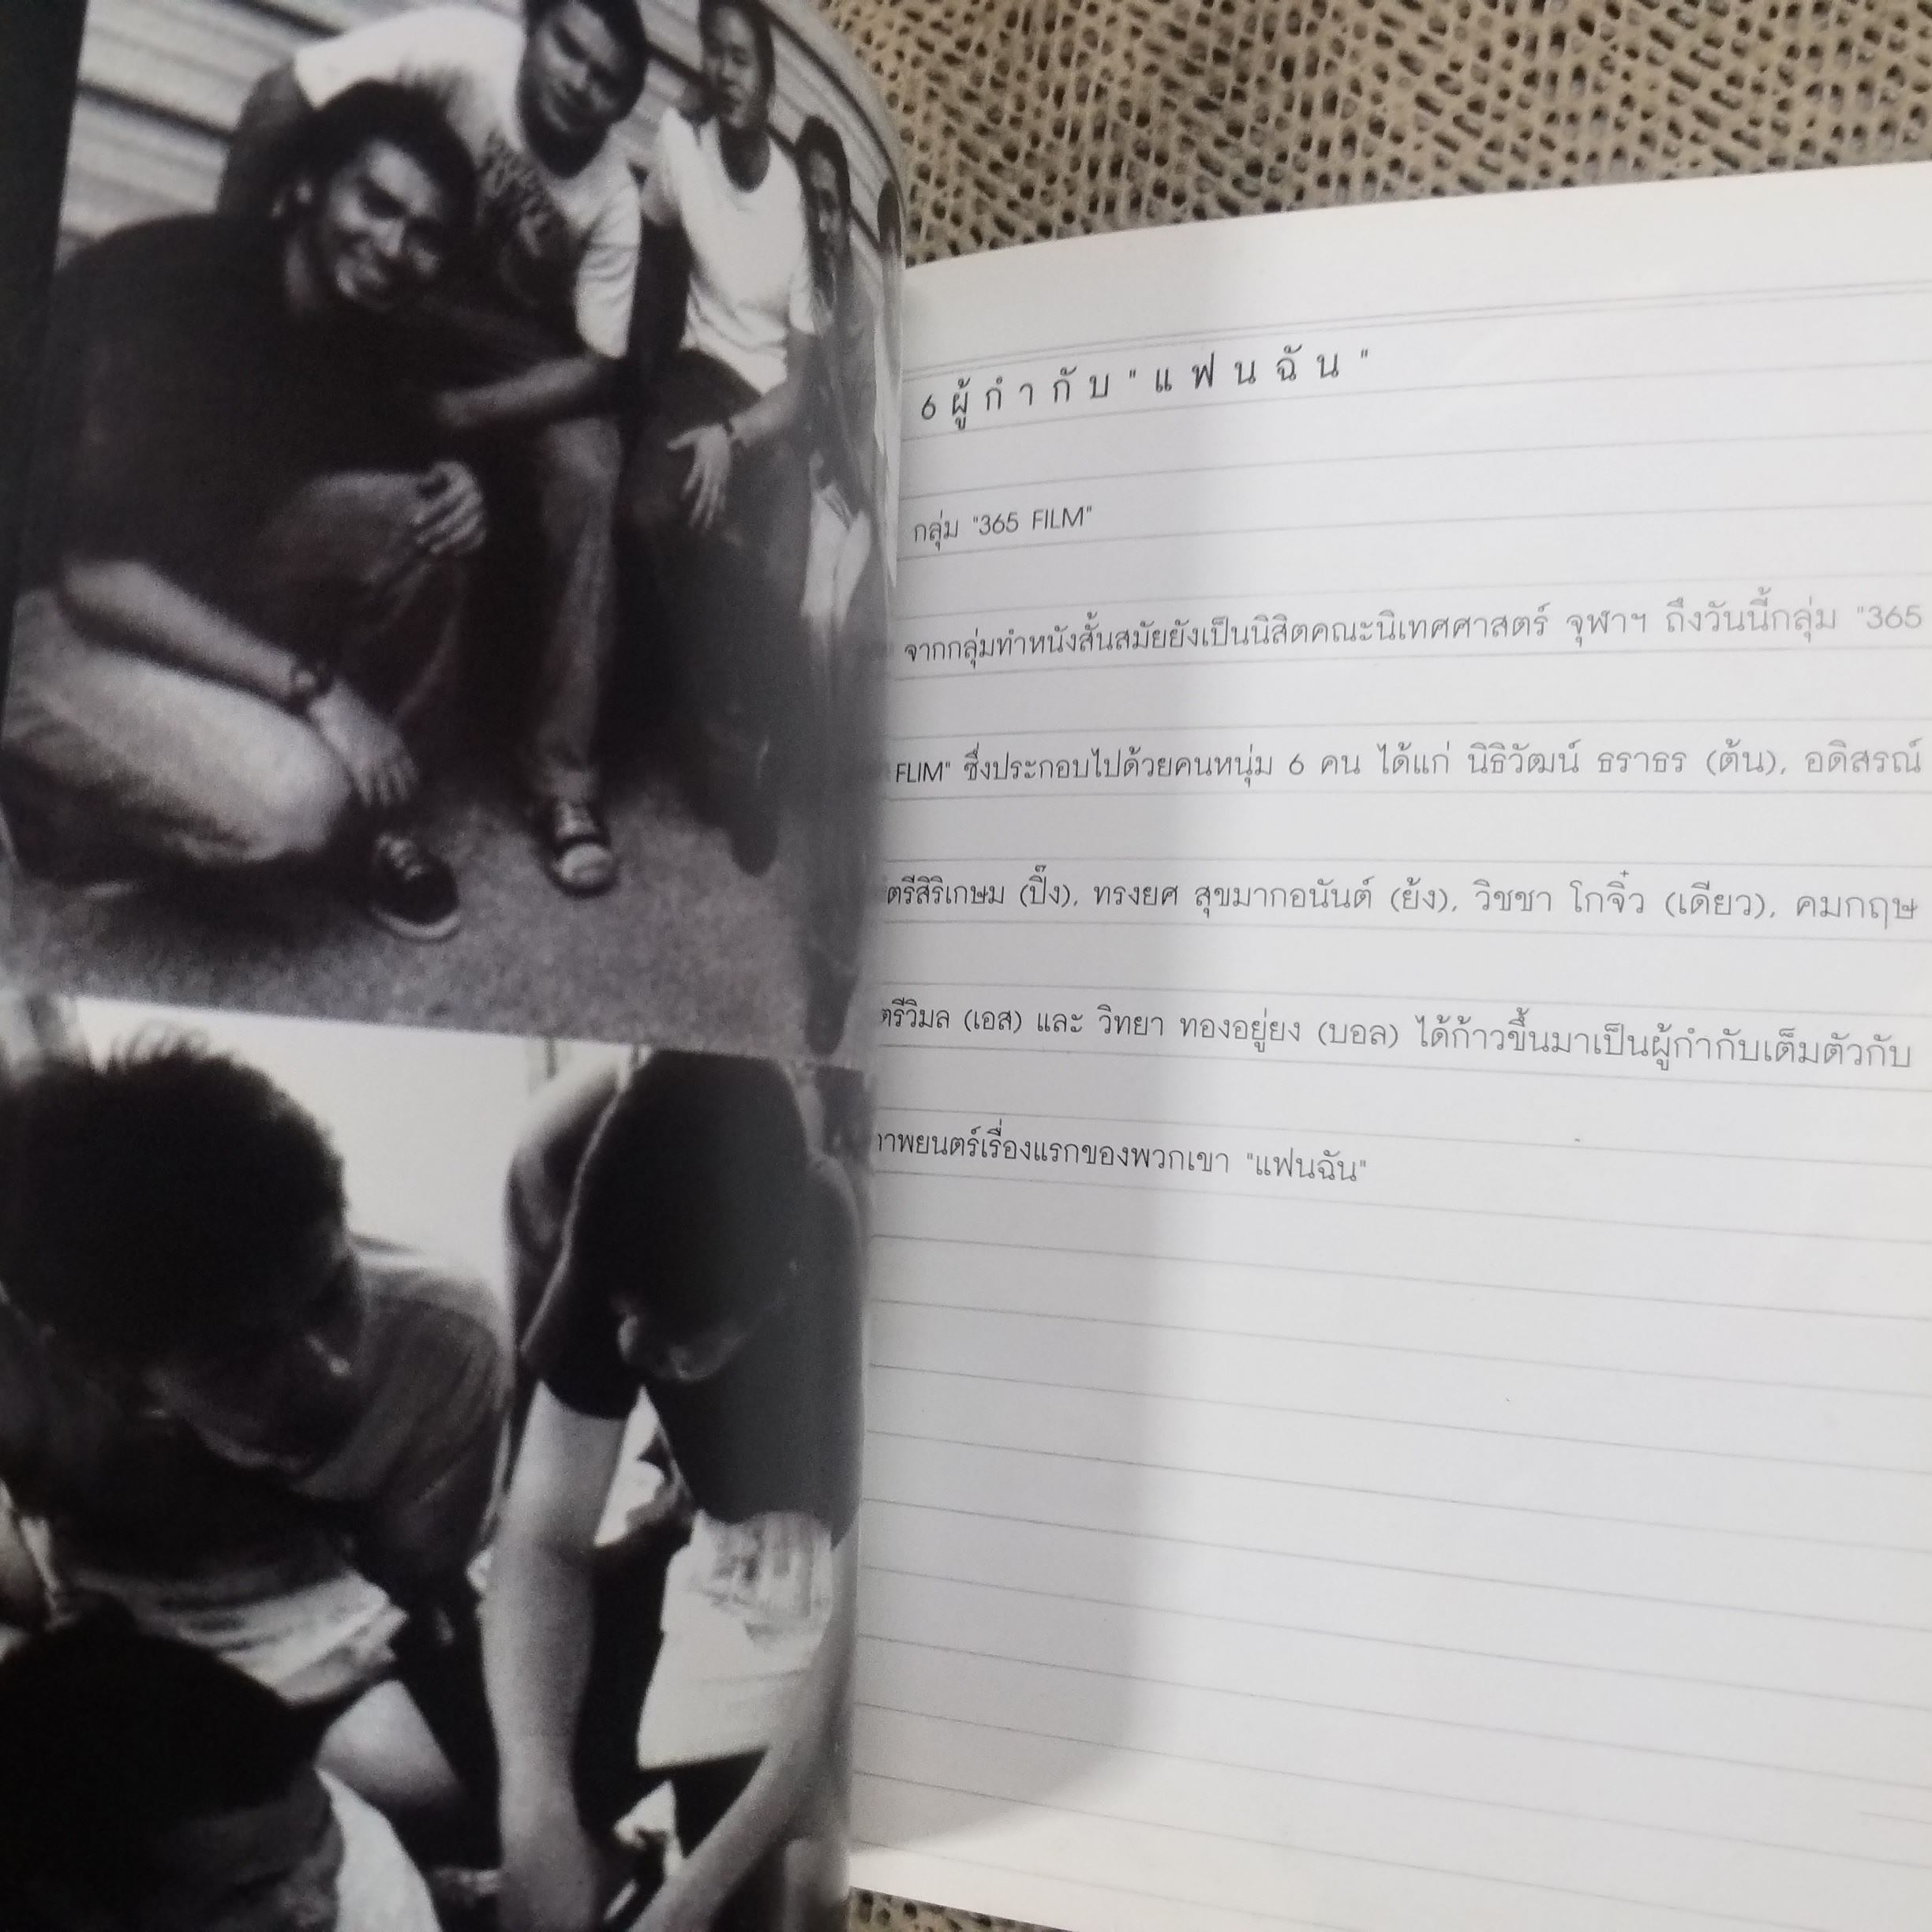 6 ผู้กำกับ "แฟนฉัน"
กลุ่ม "365 FILM"
จากกลุ่มทำหนังสั้นสมัยยังเป็นนิสิตคณะนิเทศศาสตร์ จุฬาฯ ถึงวันนี้กลุ่ม "365
FLIM" ซึ่งประกอบไปด้วยคนหนุ่ม 6 คน ได้แก่ นิธิวัฒน์ ธราธร (ต้น), อดิสรณ์
ตรีสิริเกษม (ปิ๊ง), ทรงยศ สุขมากอนันต์ (ย้ง), วิชชา โกจิ๋ว (เดียว), คมกฤษ
ตรีวิมล (เอส) และ วิทยา ทองอยู่ยง (บอล) ได้ก้าวขึ้นมาเป็นผู้กำกับเต็มตัวกับ
ภาพยนตร์เรื่องแรกของพวกเขา "แฟนฉัน"